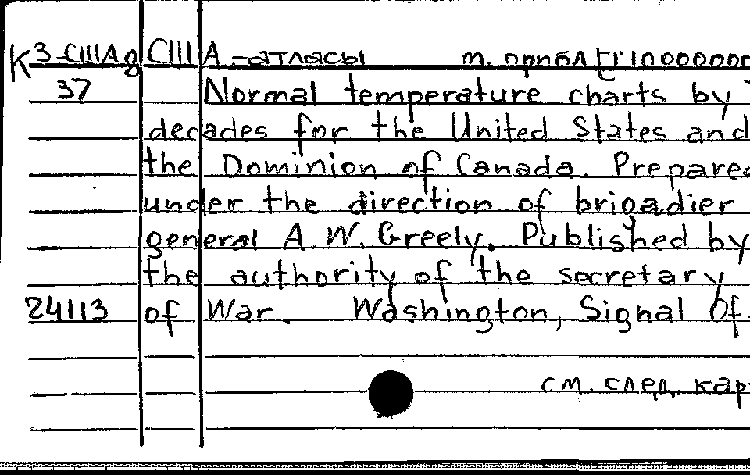 К3-СШАд США -атласы м. [1:10000000
37 Normal temperature charts by
decades for the United States and
the Dominion of Canada. Prepared
under the direction of brigadier
general A. W. Greely. Published by
the authority of the secretary
24113 of War. Washington, Signal Of
см. след. кар